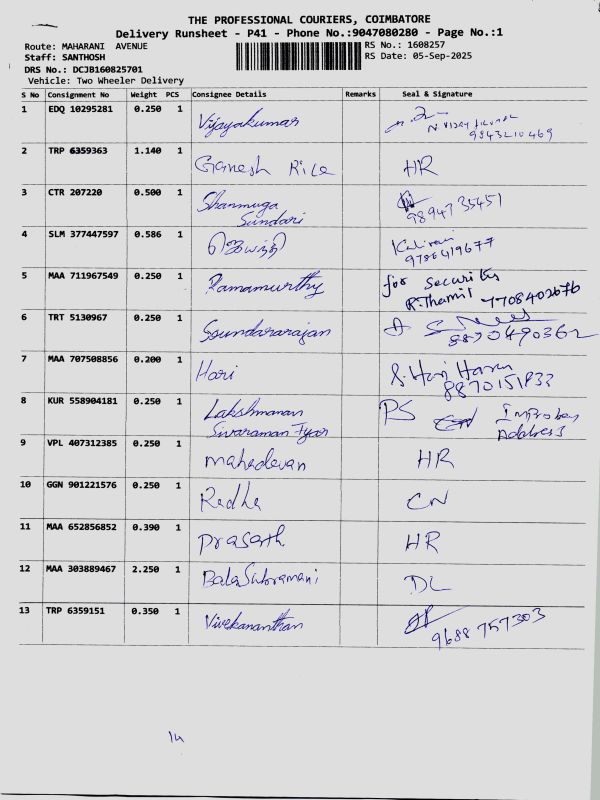 THE PROFESSIONAL COURIERS, COIMBATORE
Delivery Runsheet - P41 - Phone No.:9047080280 - Page No.:1
Route: MAHARANI AVENUE
RS No.: 1608257
Staff: SANTHOSH
RS Date: 05-Sep-2025
DRS No.: DCJB160825701
Vehicle: Two Wheeler Delivery
S No Consignment No Weight PCS Consignee Details Remarks Seal & Signature
1 EDQ 10295281 0.250 1 Vijayakumar
N Vijay Kumar
9843210469
2 TRP 6359363 1.140 1 Ganesh Rice HR
3 CTR 207220 0.500 1 Shanmuga
Sundari
9894735451
4 SLM 377447597 0.586 1 ஜெயந்தி
9786419677
5 MAA 711967549 0.250 1 Ramamurthy for Security
R.Thamil 7708402676
6 TRT 5130967 0.250 1 Soundararajan
8870490362
7 MAA 707508856 0.200 1 Hari S. Hari Haran
8870151833
8 KUR 558904181 0.250 1 Lakshmanan PS
Sivaraman Iyar Address
9 VPL 407312385 0.250 1 mahadevan HR
10 GGN 901221576 0.250 1 Radha CN
11 MAA 652856852 0.390 1 Prasath HR
12 MAA 303889467 2.250 1 BalaSubramani DL
13 TRP 6359151 0.350 1 Vivekananthan
9688757303
14